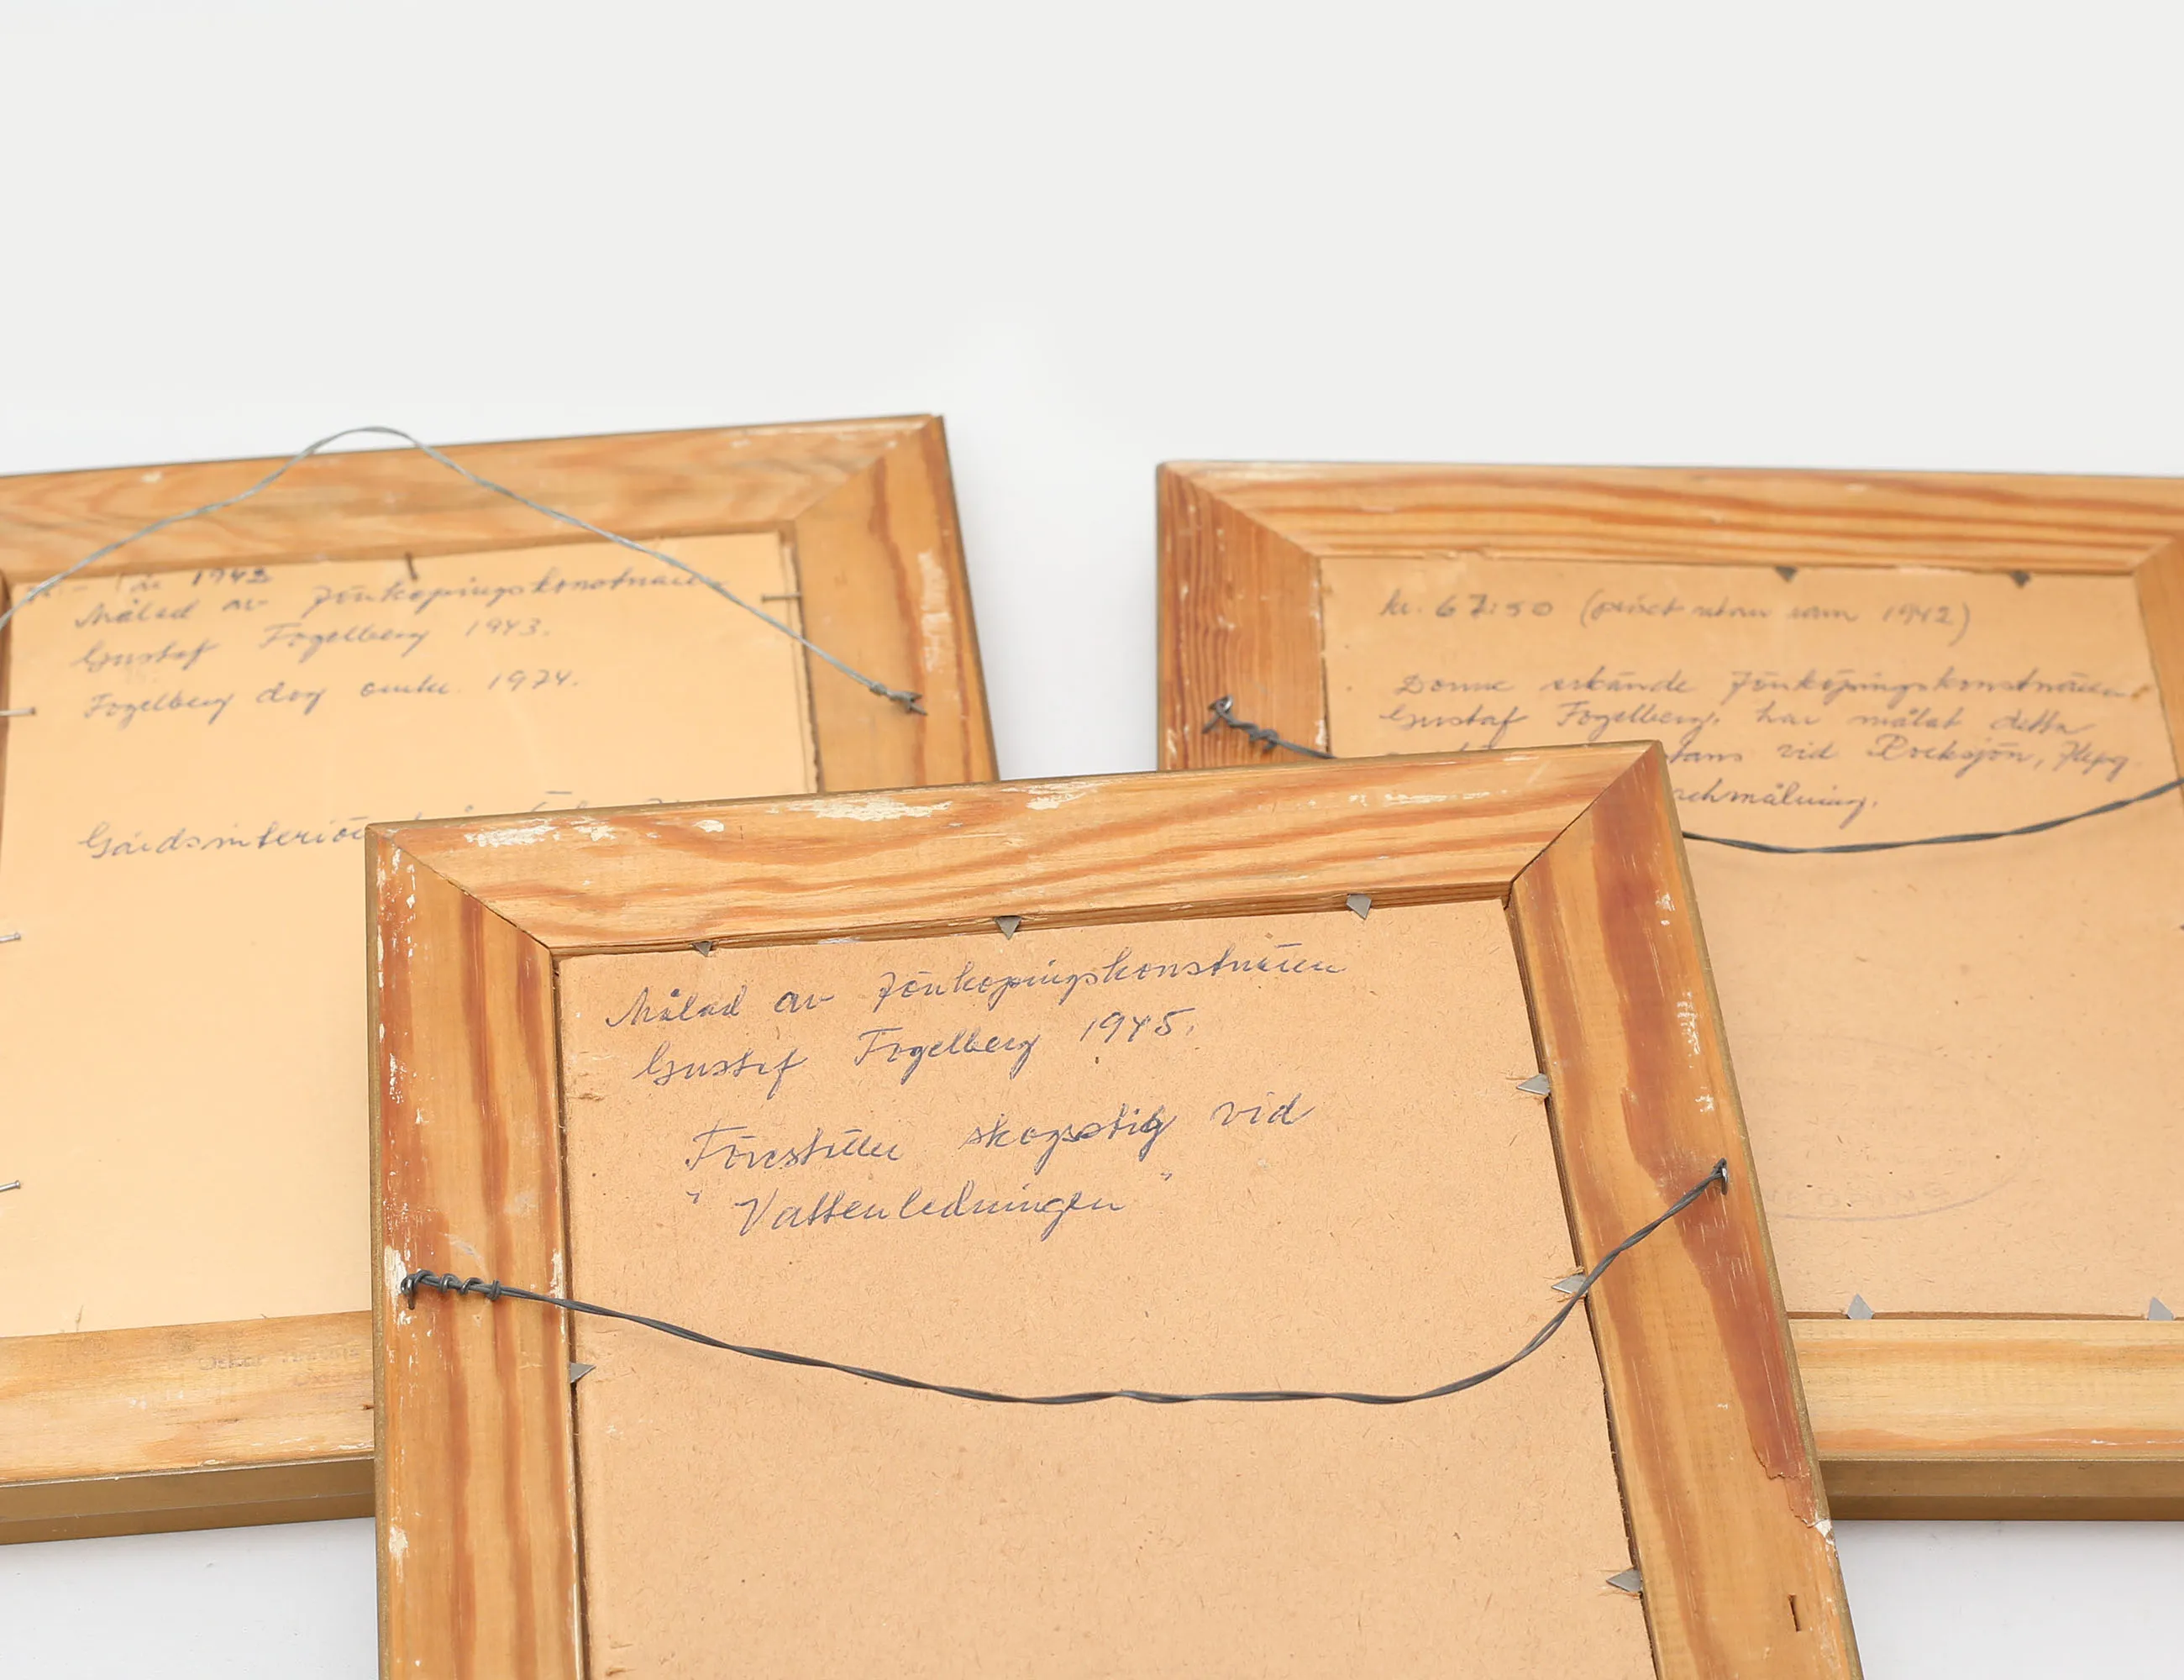 år 1943
Målad av Jönköpingskonstnären
Gustaf Fogelberg 1943.
Fogelberg dog omkr. 1974.
Gårdsinteriör
kr. 67:50 (priset utan ram 1942)
Denne erkände Jönköpingskonstnären
Gustaf Fogelberg, har målat detta
vid Rocksjön, Jkpg
Målad av Jönköpingskonstnären
Gustaf Fogelberg 1945.
Föreställer skogsstig vid
"Vattenledningen"